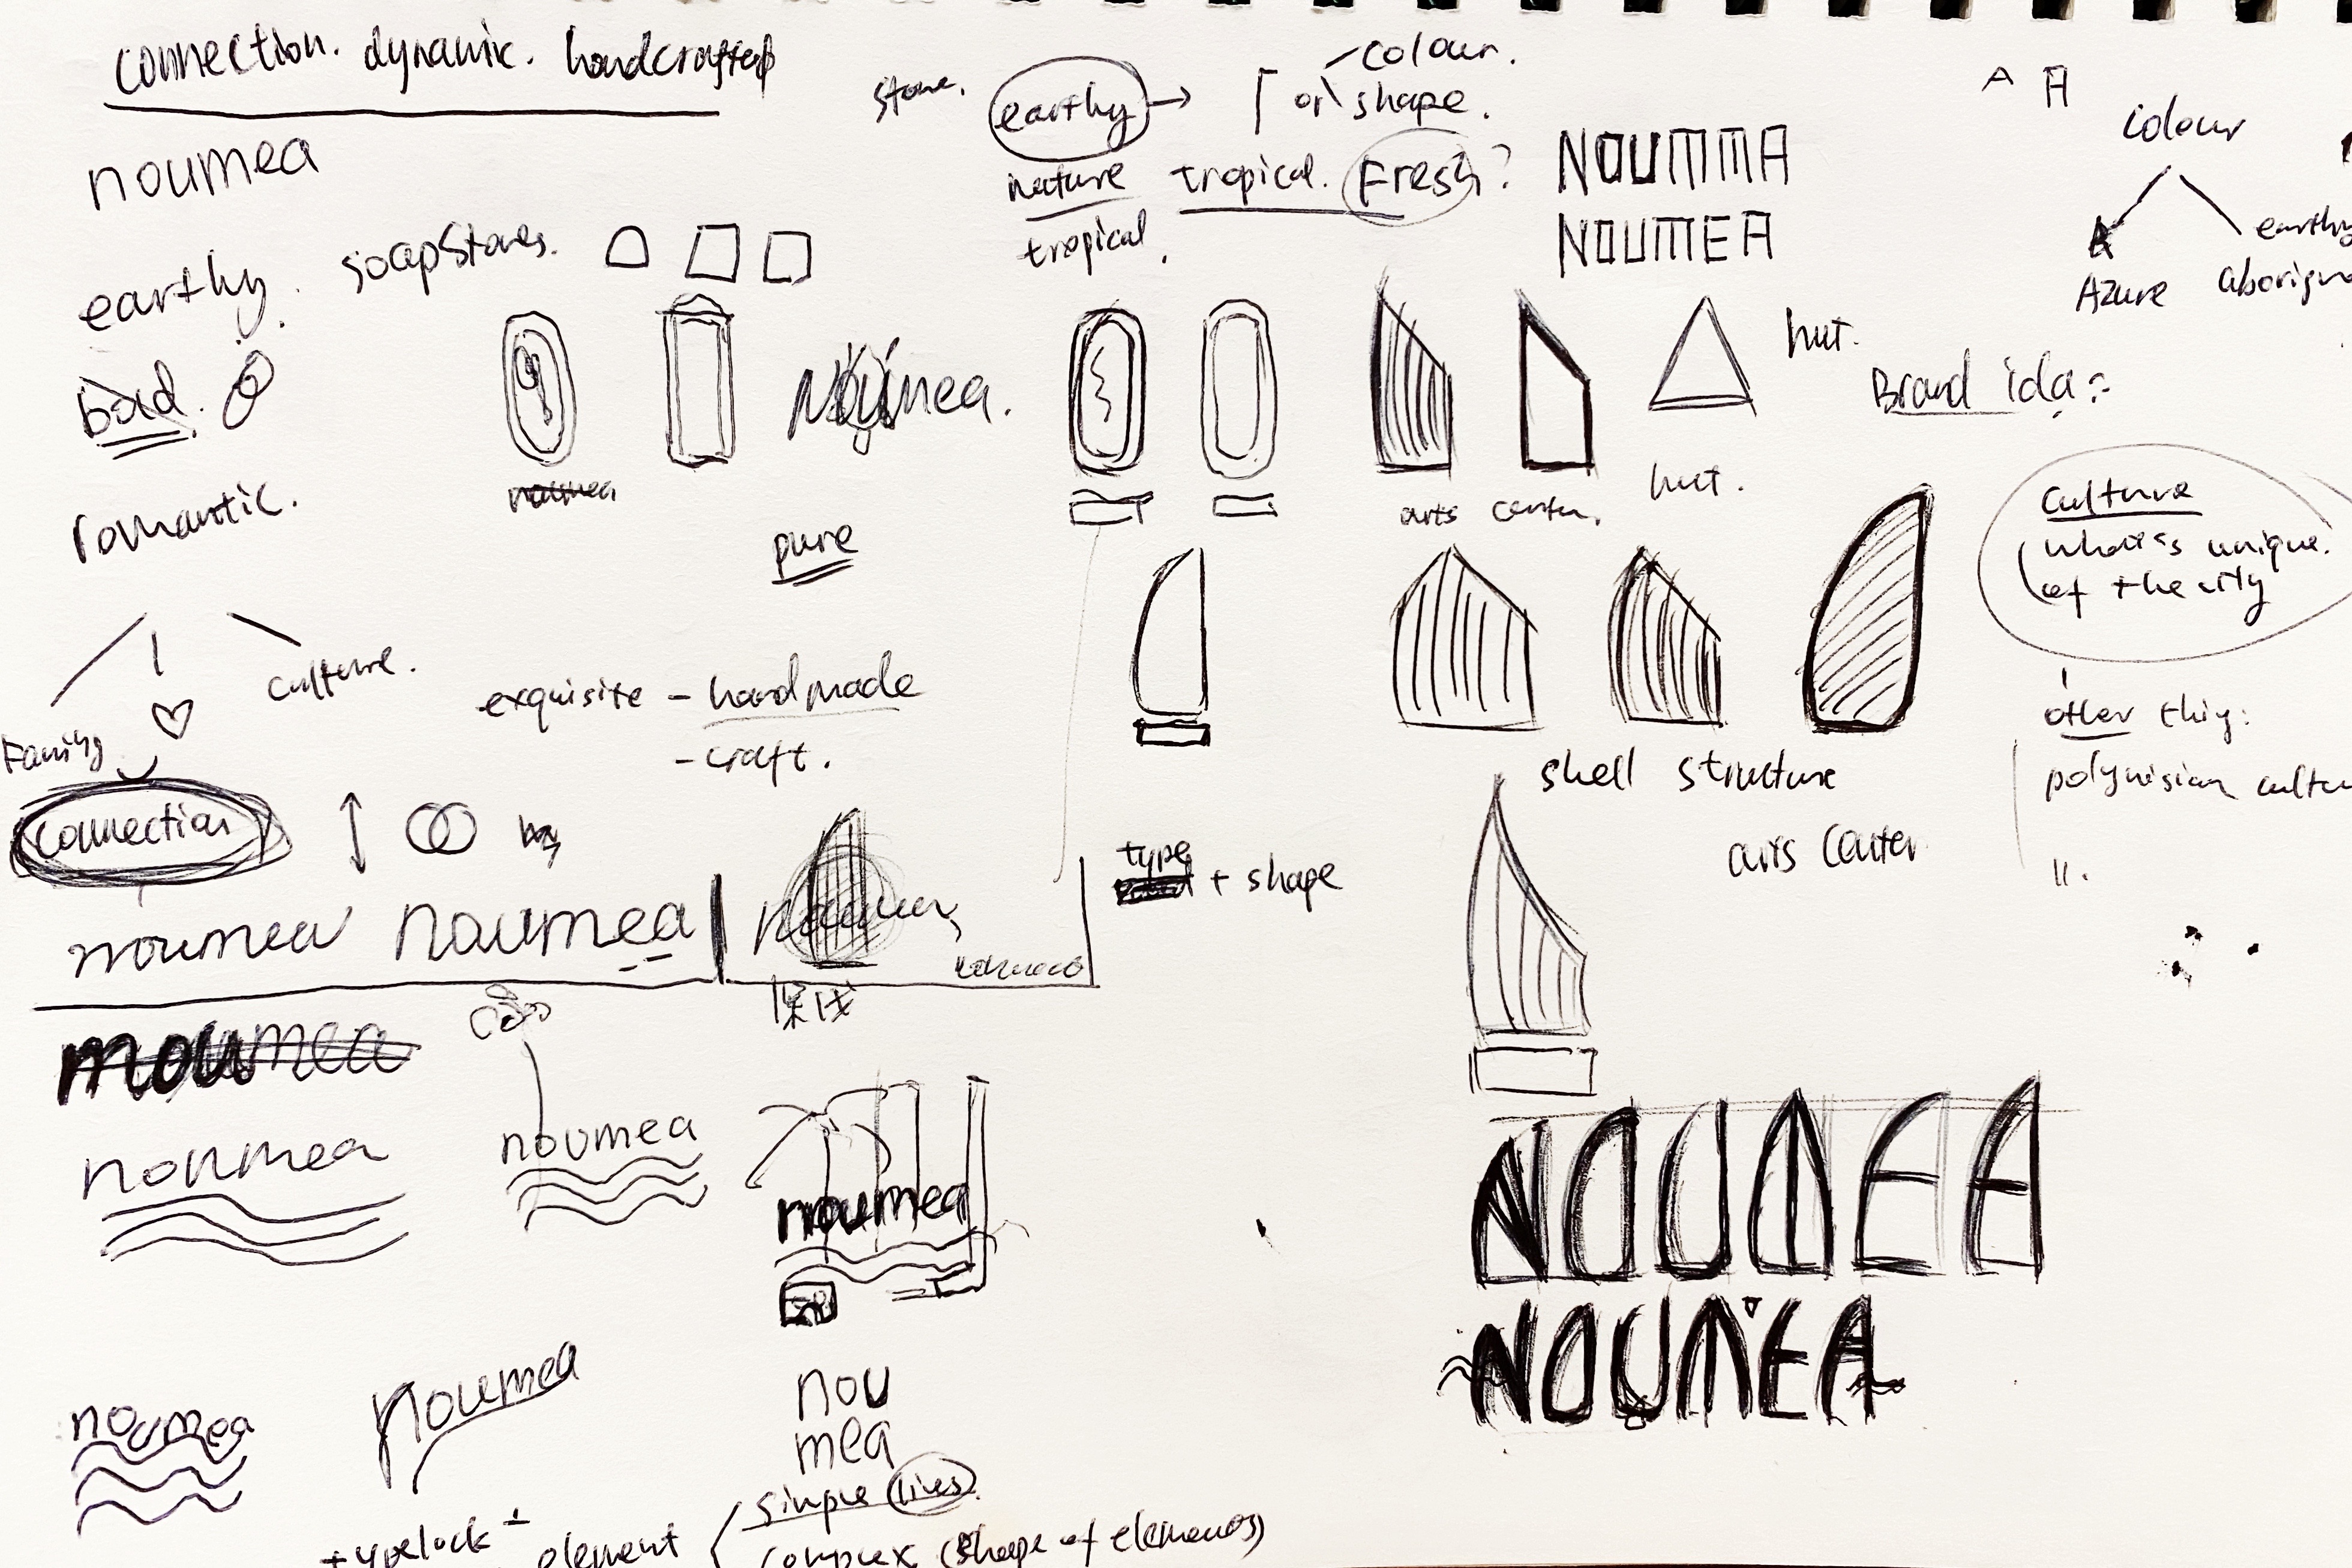 connection. dynamic. handcrafted
noumea
earthy.
soapstones.
bad.
romantic.
noumea
Noumea.
pure
culture.
Family
connection
exquisite - handmade
- craft.
noumea noumea
noumea
noumea
noumea
noumea
noumea
noumea
noumea
nou
mea
simple lines.
typelock +
element
complex (shape of elements)
stone.
earthy
or
colour.
shape.
nature
tropical.
Fresh?
tropical.
NOUMMA
NOUMEA
A A
colour
Azure
earthy
hut.
Brand ida:
arts center.
hut.
culture
what's unique.
of the city
other thig:
polynisian
".
shell structure
arts center
type
+ shape
NOUMEA
NOUMEA